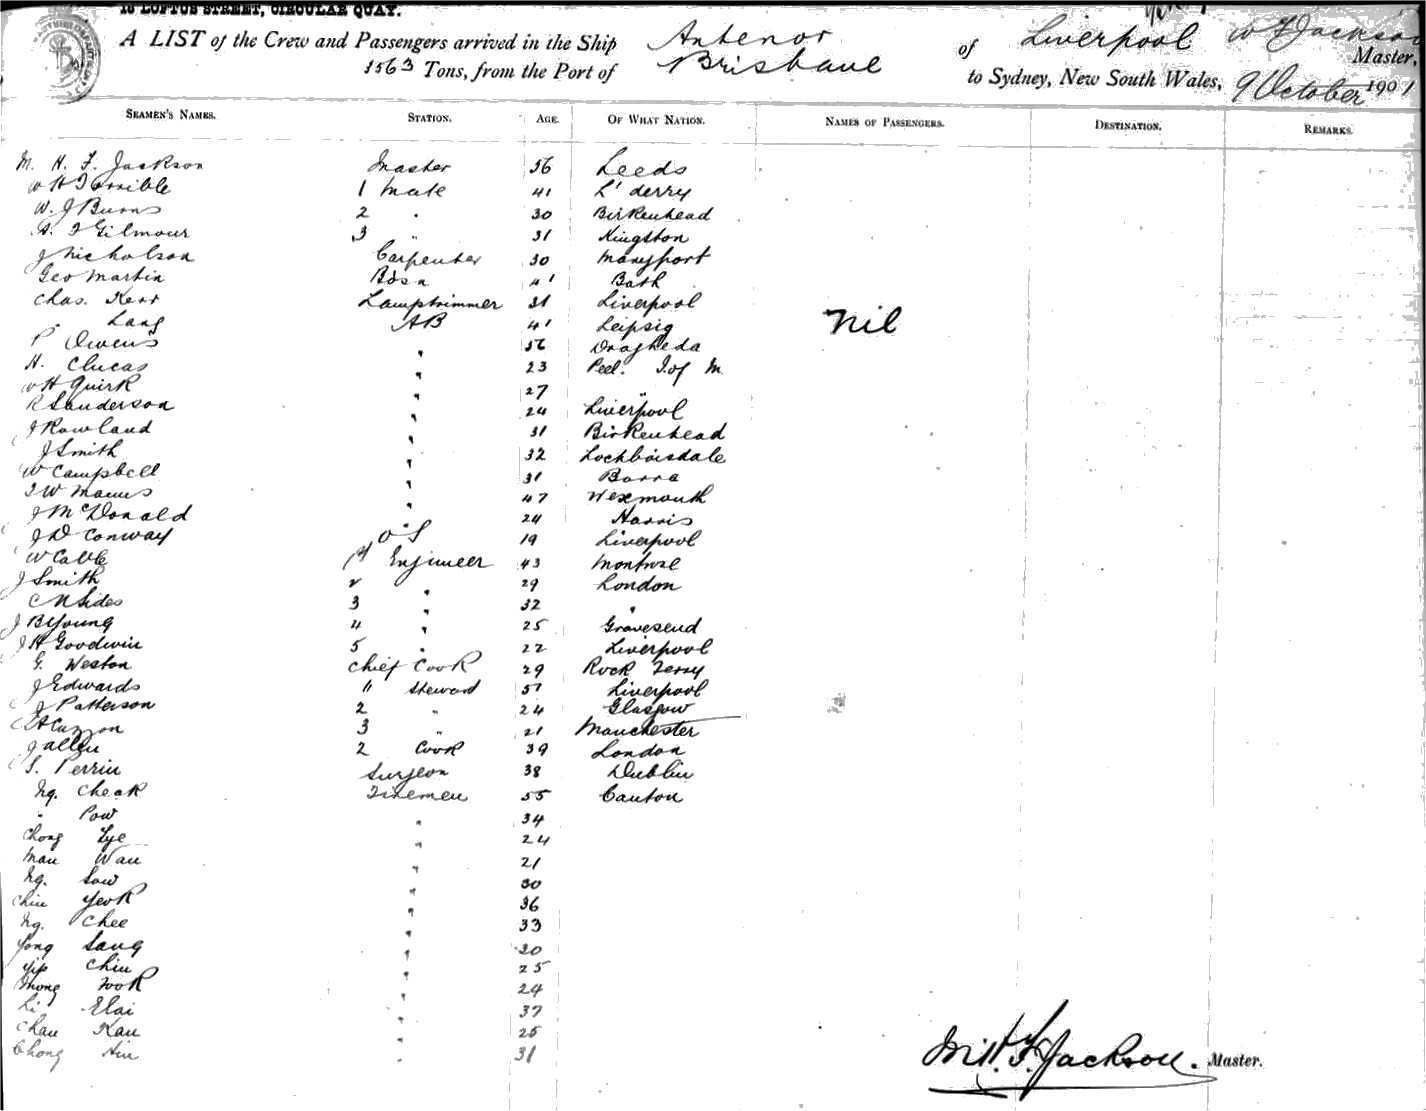 18 LOFTUS STREET, CIRCULAR QUAY.
A LIST of the Crew and Passengers arrived in the Ship Antenor of Liverpool W F Jackson Master,
1563 Tons, from the Port of Brisbane to Sydney, New South Wales, 9 October 1901
SEAMEN'S NAMES. STATION. AGE. OF WHAT NATION. NAMES OF PASSENGERS. DESTINATION. REMARKS.
M. H. F. Jackson Master 56 Leeds
W H 1 Mate 41 L'derry
W. J Burns 2 " 30 Birkenhead
Gilmour 3 " 31 Kingston
J Nicholson Carpenter 30 Maryport
Geo Martin Bosn 41 Bath
Chas. Kerr Lamptrimmer 31 Liverpool
" Lang AB 41 Leipsig
P Owens " 56 Drogheda
H. Clucas " 23 Peel. I. of M
W H Quirk " 27 "
R Sanderson " 24 Liverpool
J Rowland " 31 Birkenhead
J Smith " 32 Lochboisdale
W Campbell " 31 Barra
W " 47 Wexmouth
J McDonald " 24 Harris
J D Conway O S 19 Liverpool
W 1st Engineer 43 Montrose
J Smith 2 " 29 London
C N Sides 3 " 32 "
J B Young 4 " 25 Gravesend
J H Goodwin 5 " 22 Liverpool
G. Weston Chief Cook 29 Rock Ferry
J Edwards " Steward 51 Liverpool
J Patterson 2 " 24 Glasgow
3 " 21 Manchester
J Allen 2 Cook 39 London
S. Perrin Surgeon 38 Dublin
Ng. Cheak Firemen 55 Canton
" Pow " 34
Chong Lye " 24
Man Wan " 21
Ng. Sow " 30
Chin Yeok " 36
Ng. Chee " 33
Yong Sang " 30
Yip Chin " 25
Wook " 24
Li Elai " 37
Chan Kan " 25
Chong Hin " 31
Nil
M. H. F. Jackson. Master.